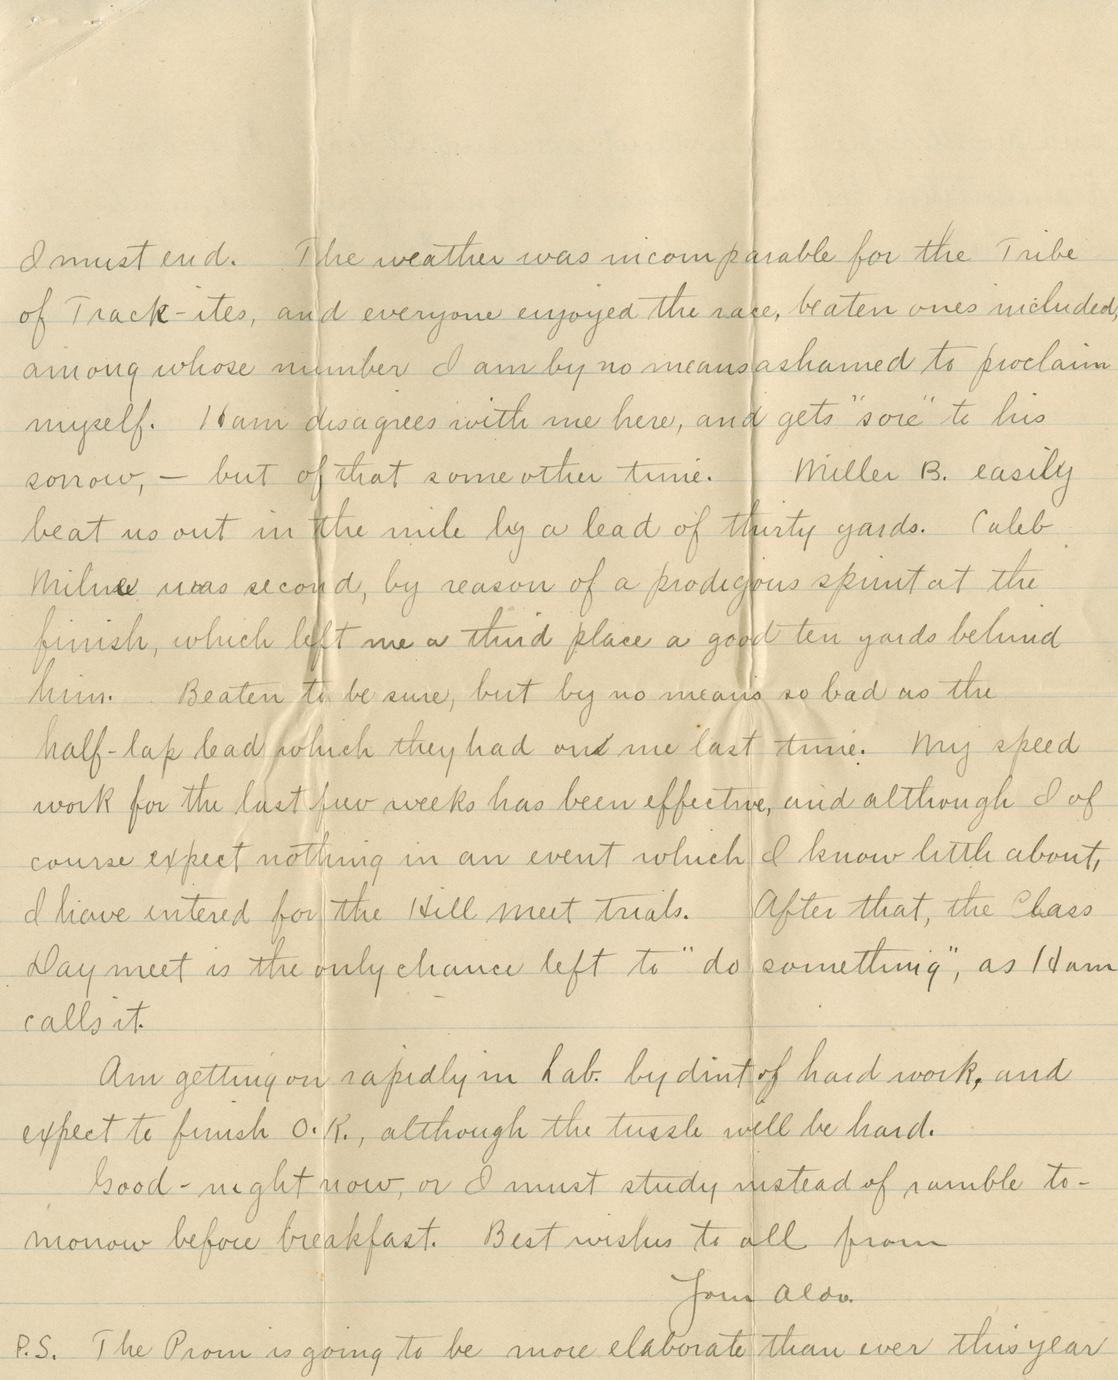 I must end. The weather was incomparable for the Tribe
of Track-ites, and everyone enjoyed the race, beaten ones included,
among whose number I am by no means ashamed to proclaim
myself. Ham disagrees with me here, and gets "sore" to his
sorrow, — but of that some other time. Miller B. easily
beat us out in the mile by a lead of thirty yards. Caleb
Milne was second, by reason of a prodigious spurint at the
finish, which left me a third place a good ten yards behind
him. Beaten to be sure, but by no means so bad as the
half-lap lead which they had on me last time. My speed
work for the last few weeks has been effective, and although I of
course expect nothing in an event which I know little about,
I have intered for the Hill meet trials. After that, the Class
Day meet is the only chance left to "do something", as Ham
calls it.
Am getting on rapidly in Lab. by dint of hard work, and
expect to finish O.K., although the tussle will be hard.
Good-night now, or I must study instead of ramble to-
morrow before breakfast. Best wishes to all from
Your Aldo.
P.S. The Prom is going to be more elaborate than ever this year